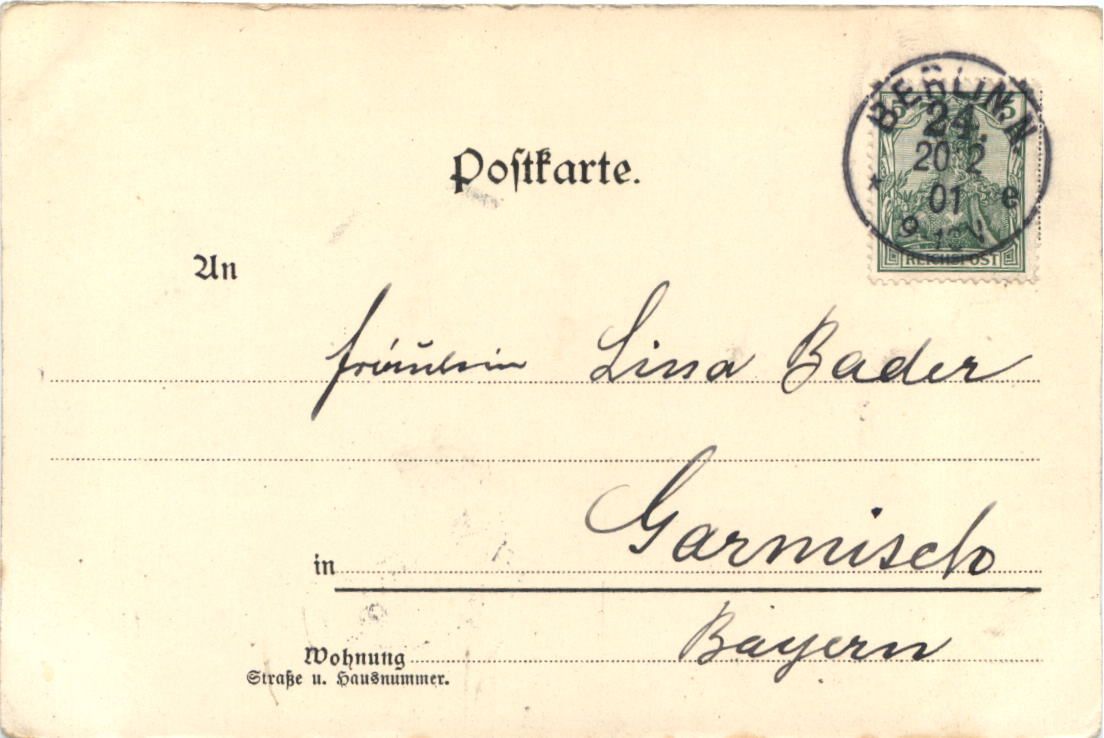 BERLIN.N.
24.
5 5
20 2
01 e
REICHSPOST
Postkarte.
An
Fräulein Lina Bader
in Garmisch
Bayern
Wohnung
Straße u. Hausnummer.